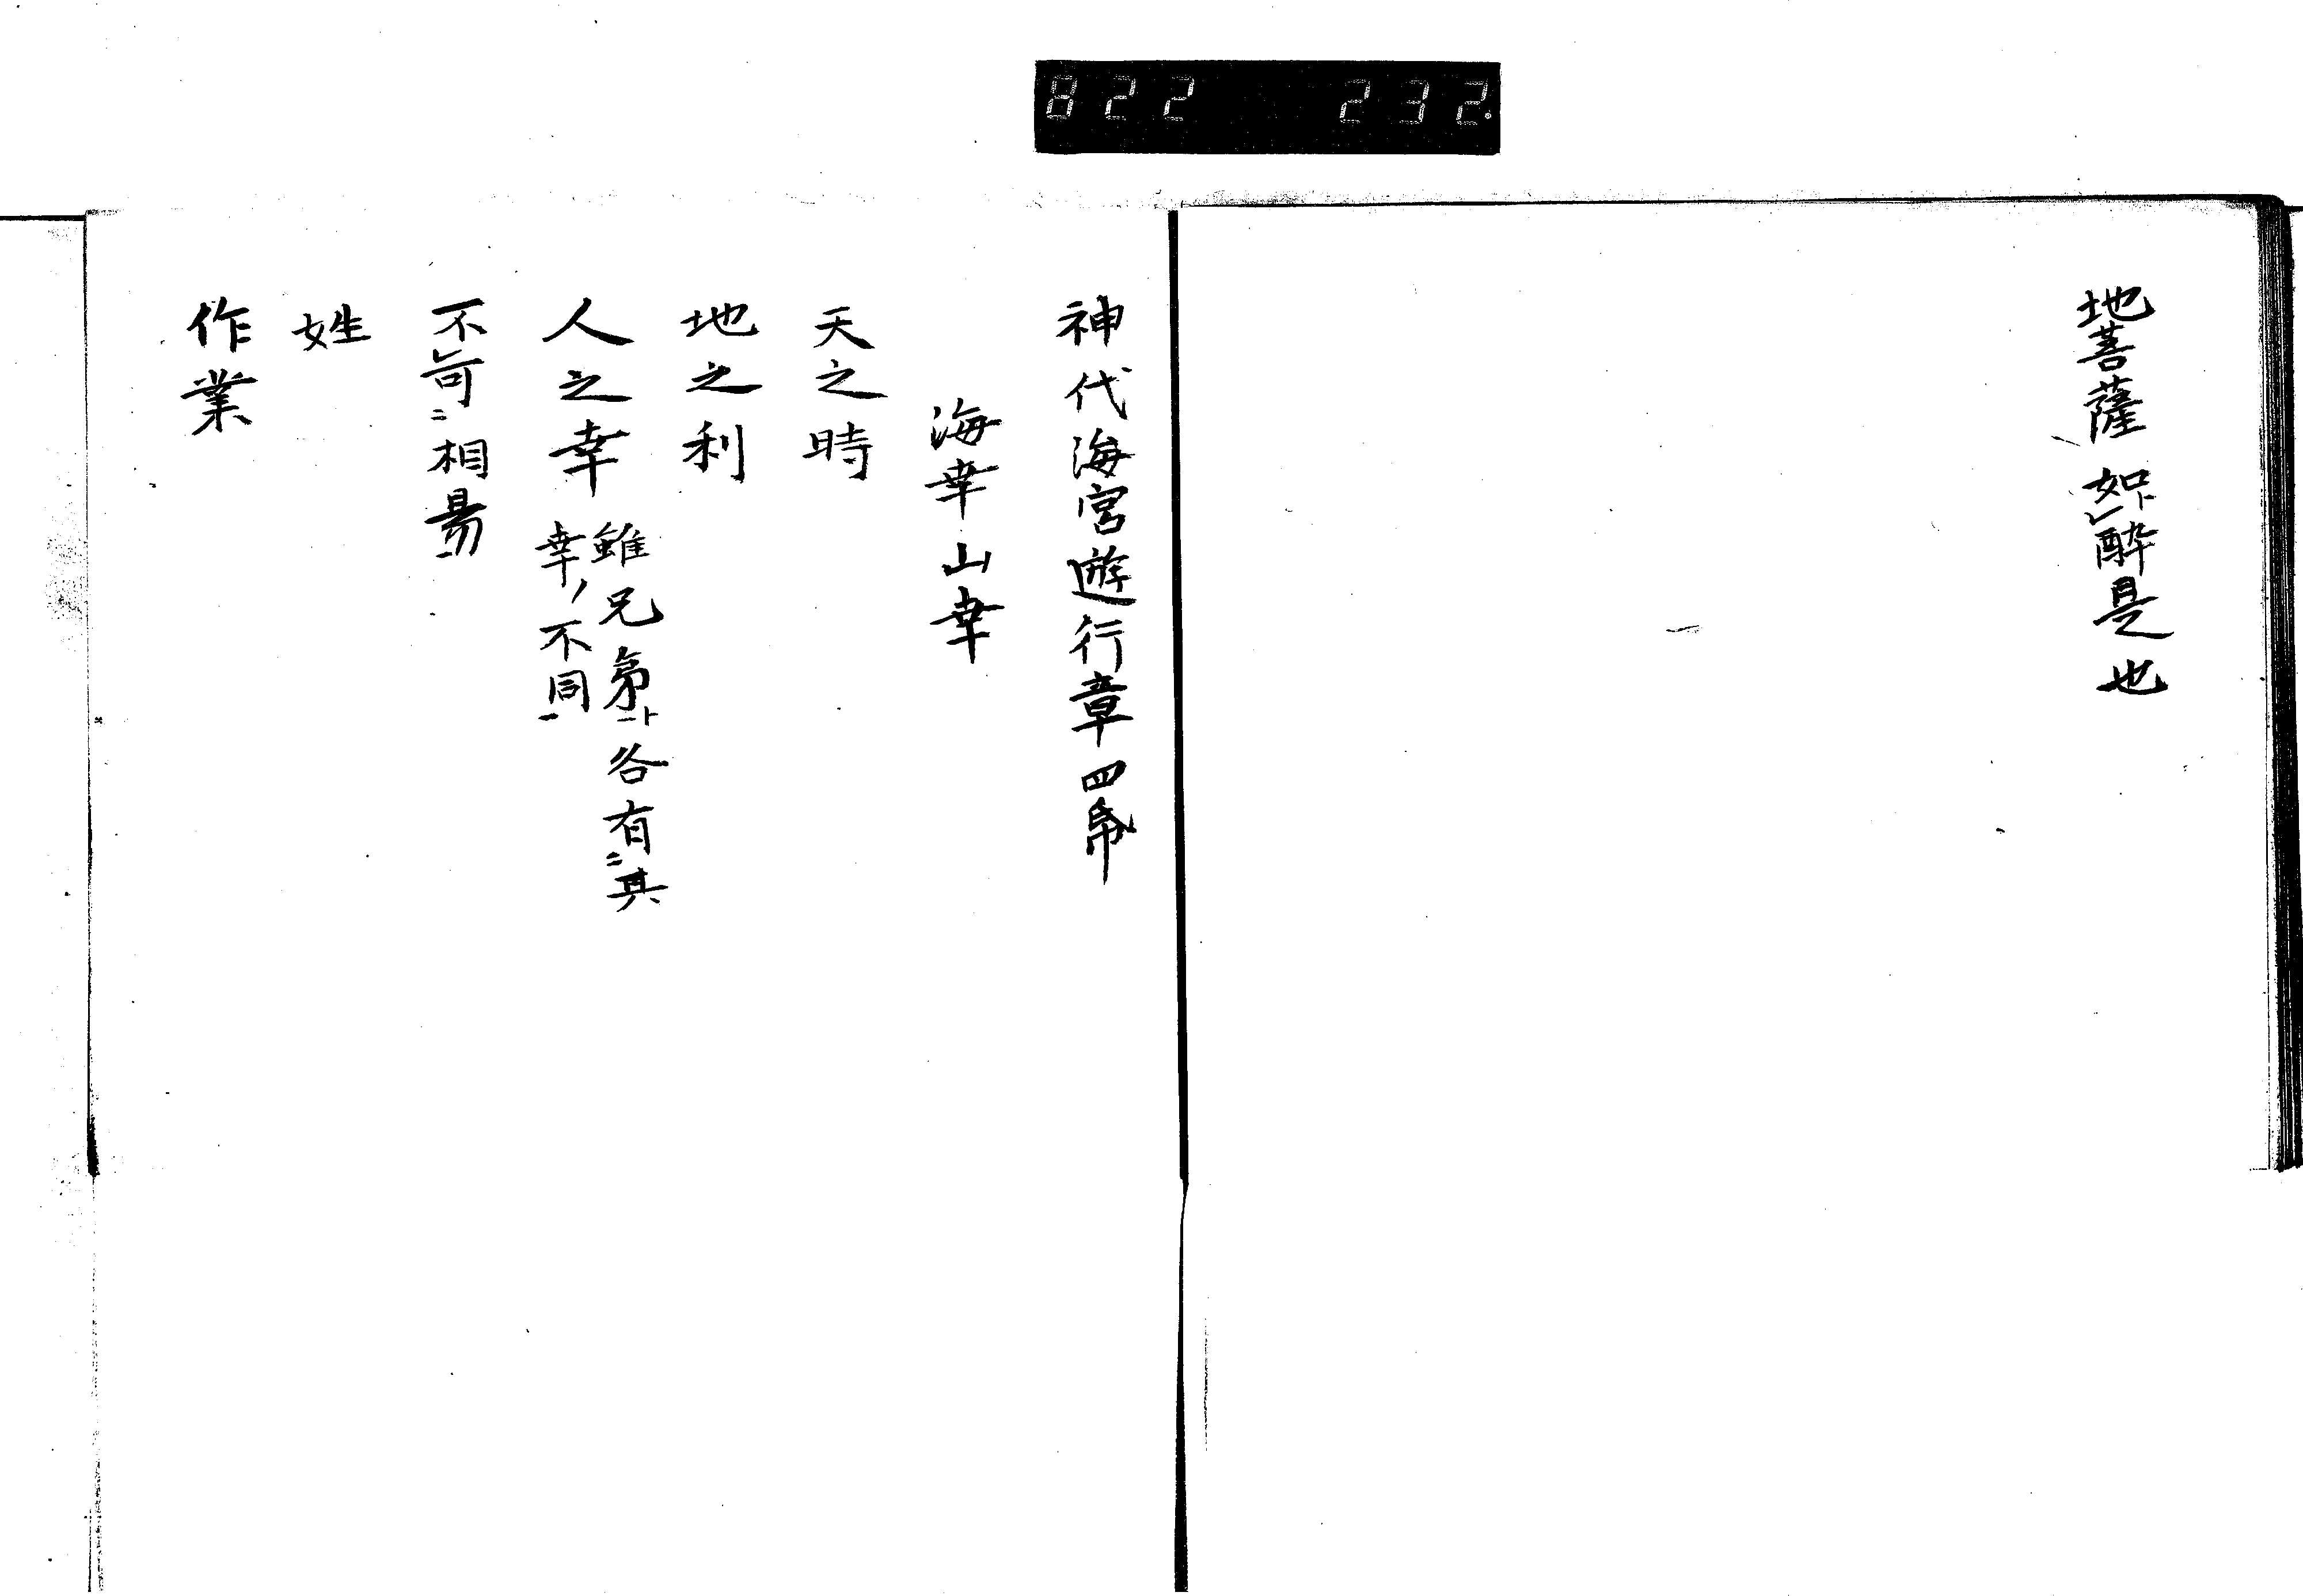 822 232.
地菩薩如㆑酔是也
神代海宮遊行章四帋
海幸山幸
天之時
地之利
人之幸 雖兄弟㆓ト各有㆓其
幸ノ不同㆒
不㆑可㆓相易㆒
姓
作業